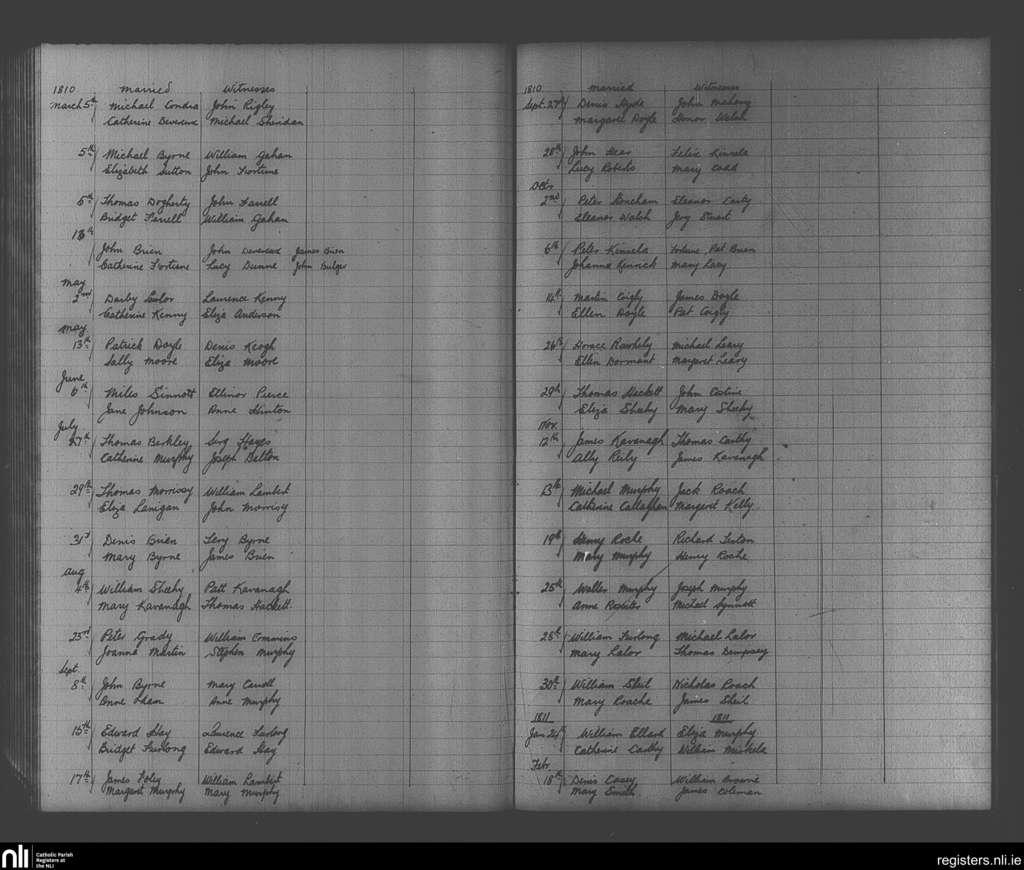 1810 Married Witnesses
March 5th Michael Condra John Rigley
Catherine Devereux Michael Sheridan
5th Michael Byrne William Gahan
Elizabeth Sutton John Fortune
5th Thomas Dogherty John Farrell
Bridget Ferrell William Gahan
13th
John Brien John Devereux James Brien
Catherine Fortune Lucy Dunne John Bulger
May
2nd Darby Lalor Laurence Kenny
Catherine Kenny Eliza Anderson
May
13th Patrick Doyle Denis Keogh
Sally Moore Eliza Moore
June
6th Miles Sinnott Ellinor Pierce
Jane Johnson Anne Hinton
July
27th Thomas Berkley Hayes
Catherine Murphy Joseph Belton
29th Thomas Morrissy William Lambert
Eliza Lanigan John Morrisy
31st Denis Brien Byrne
Mary Byrne James Brien
Aug
4th William Sheehy Patt Kavanagh
Mary Kavanagh Thomas Hackett
23rd Peter Grady William Commins
Joanna Martin Stephen Murphy
Sept.
8th John Byrne Mary
Anne Anne Murphy
15th Edward Hay Laurence Furlong
Bridget Furlong Edward Hay
17th James Foley William Lambert
Margaret Murphy Mary Murphy
1810 Married Witnesses
Sept. 27 Denis Hyde John Mahony
Margaret Doyle Honor Walsh
28th John Felix Kinsela
Lucy Roberts Mary Codd
Octr
2nd Peter Eleanor Carty
Eleanor Walsh Jery Stuart
6th Peter Kinsela Fortune Pat Brien
Johanna Kenrick Mary Lacy
14th Martin Coigly James Doyle
Ellen Doyle Pat Coigly
26th Michael Leary
Ellen Dormant Margaret Leary
29th Thomas Hackett John
Eliza Sheehy Mary Sheehy
Nov.
12th James Kavanagh Thomas Carthy
Ally Rely James Kavanagh
13th Michael Murphy Jack Roach
Catherine Callaghan Margaret Kelly
19th Henry Roche Richard
Mary Murphy Henry Roche
25th Walter Murphy Joseph Murphy
Anne Michael Synnott
28th William Furlong Michael Lalor
Mary Lalor Thomas Dempsey
30th William Sheil Nicholas Roach
Mary Roache James Sheil
1811 1811
Jan 24th William Ellard Eliza Murphy
Catherine Carthy William
Febr.
18th Denis Casey William Browne
Mary Smith James Coleman
nli
Catholic Parish
Registers at
the NLI
registers.nli.ie